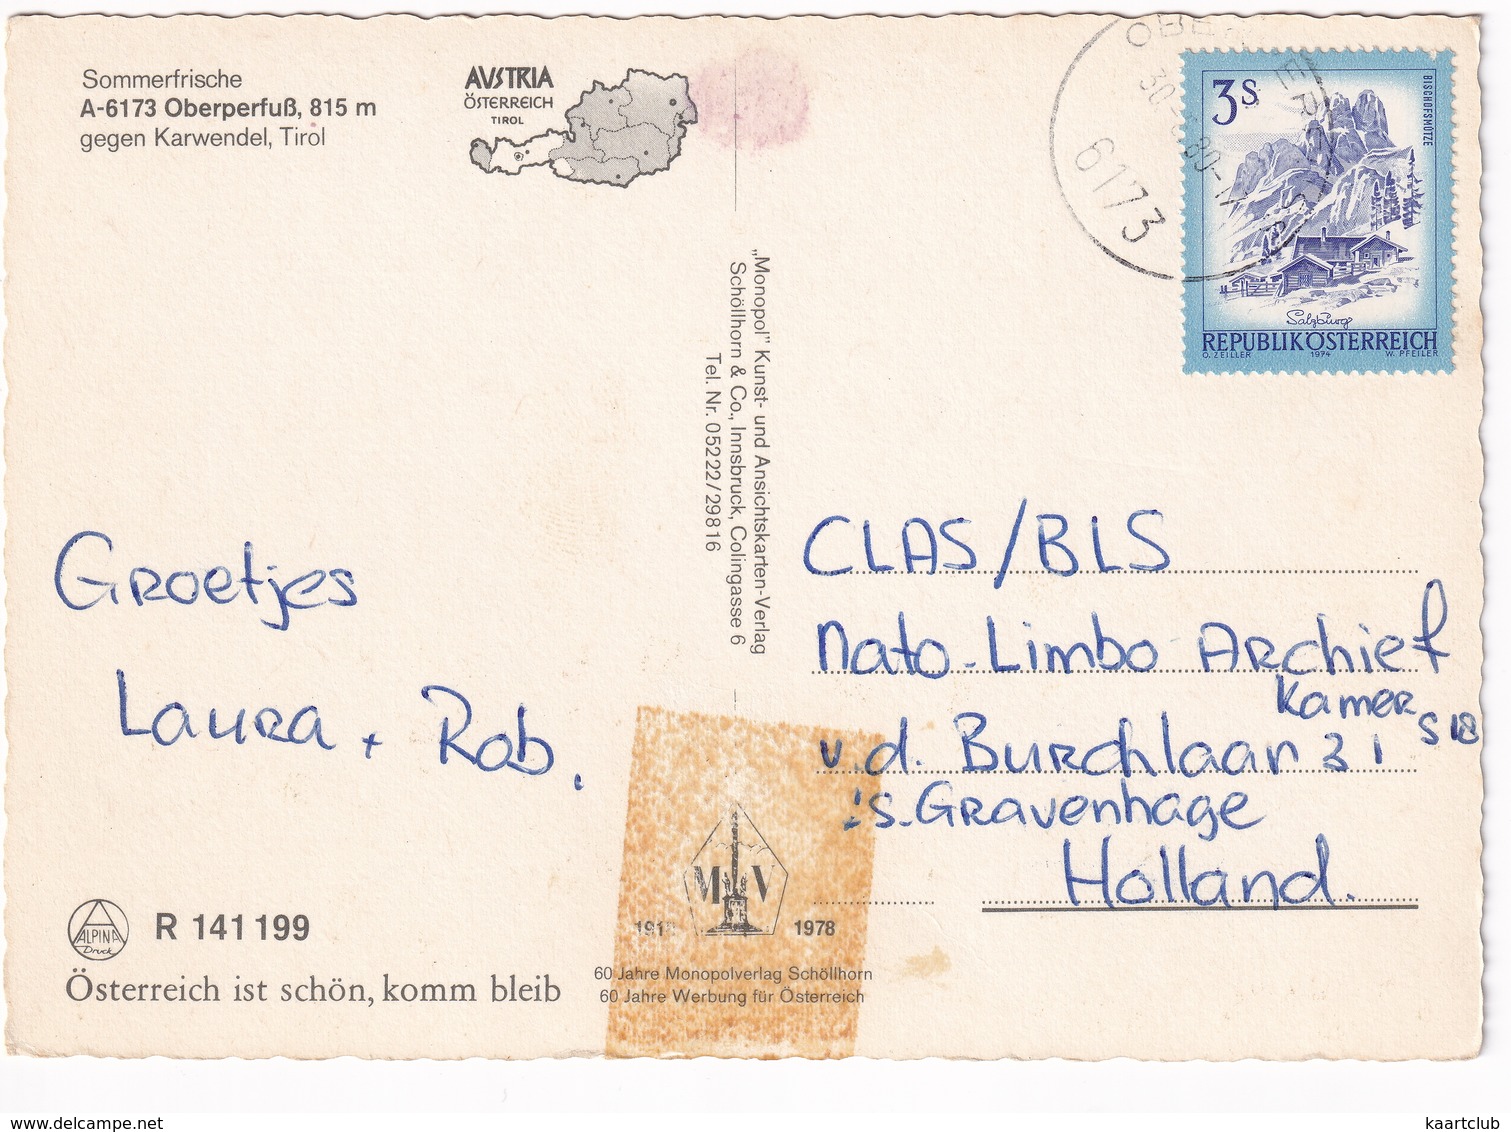 Sommerfrische
A-6173 Oberperfuß, 815 m
gegen Karwendel, Tirol
AUSTRIA
ÖSTERREICH
TIROL
6173
3 S
BISCHOFSMÜTZE
Salzburg
REPUBLIK ÖSTERREICH
O. ZEILLER 1974 W. PFEILER
„Monopol" Kunst- und Ansichtskarten-Verlag
Schöllhorn & Co., Innsbruck, Colingasse 6
Tel. Nr. 05222/29816
Groetjes
Laura + Rob.
CLAS/BLS
Nato-Limbo Archief
Kamer S 18
v.d. Burchlaan 31
's-Gravenhage
Holland.
ALPINA
Druck
R 141 199
Österreich ist schön, komm bleib
M V
1918 1978
60 Jahre Monopolverlag Schöllhorn
60 Jahre Werbung für Österreich
www.delcampe.net
kaartclub